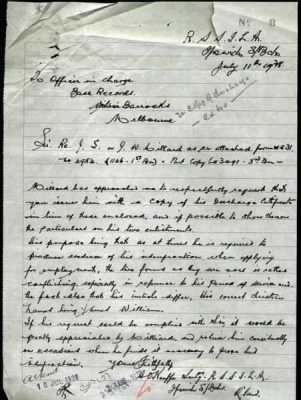 R.S.S.I.L.A.
Ipswich S/Bch
July 11th 1938
To Officer in charge
Base Records
Victoria Barracks
Melbourne
Sir Re J. S. or J. W. Willard as on attached form
1st Bn
5th Bn
Willard has approached me to respectfully request that
you issue him with a copy of his Discharge Certificate
in lieu of those enclosed, and if possible to show thereon
the particulars on his two enlistments.
His purpose being that as at times he is required to
produce evidence of his when applying
for employment, the two forms as they are now is rather
conflicting, specially in reference to his period of service and
the fact also that his initials differ, His correct christian
names being William.
If his request could be complied with this it would be
greatly appreciated by Willard and relieve him considerably
on occasions when he finds it necessary to prove his
Yours Faithfully
Secty R.S.S.I.L.A.
Ipswich S/Bch
Q'land.